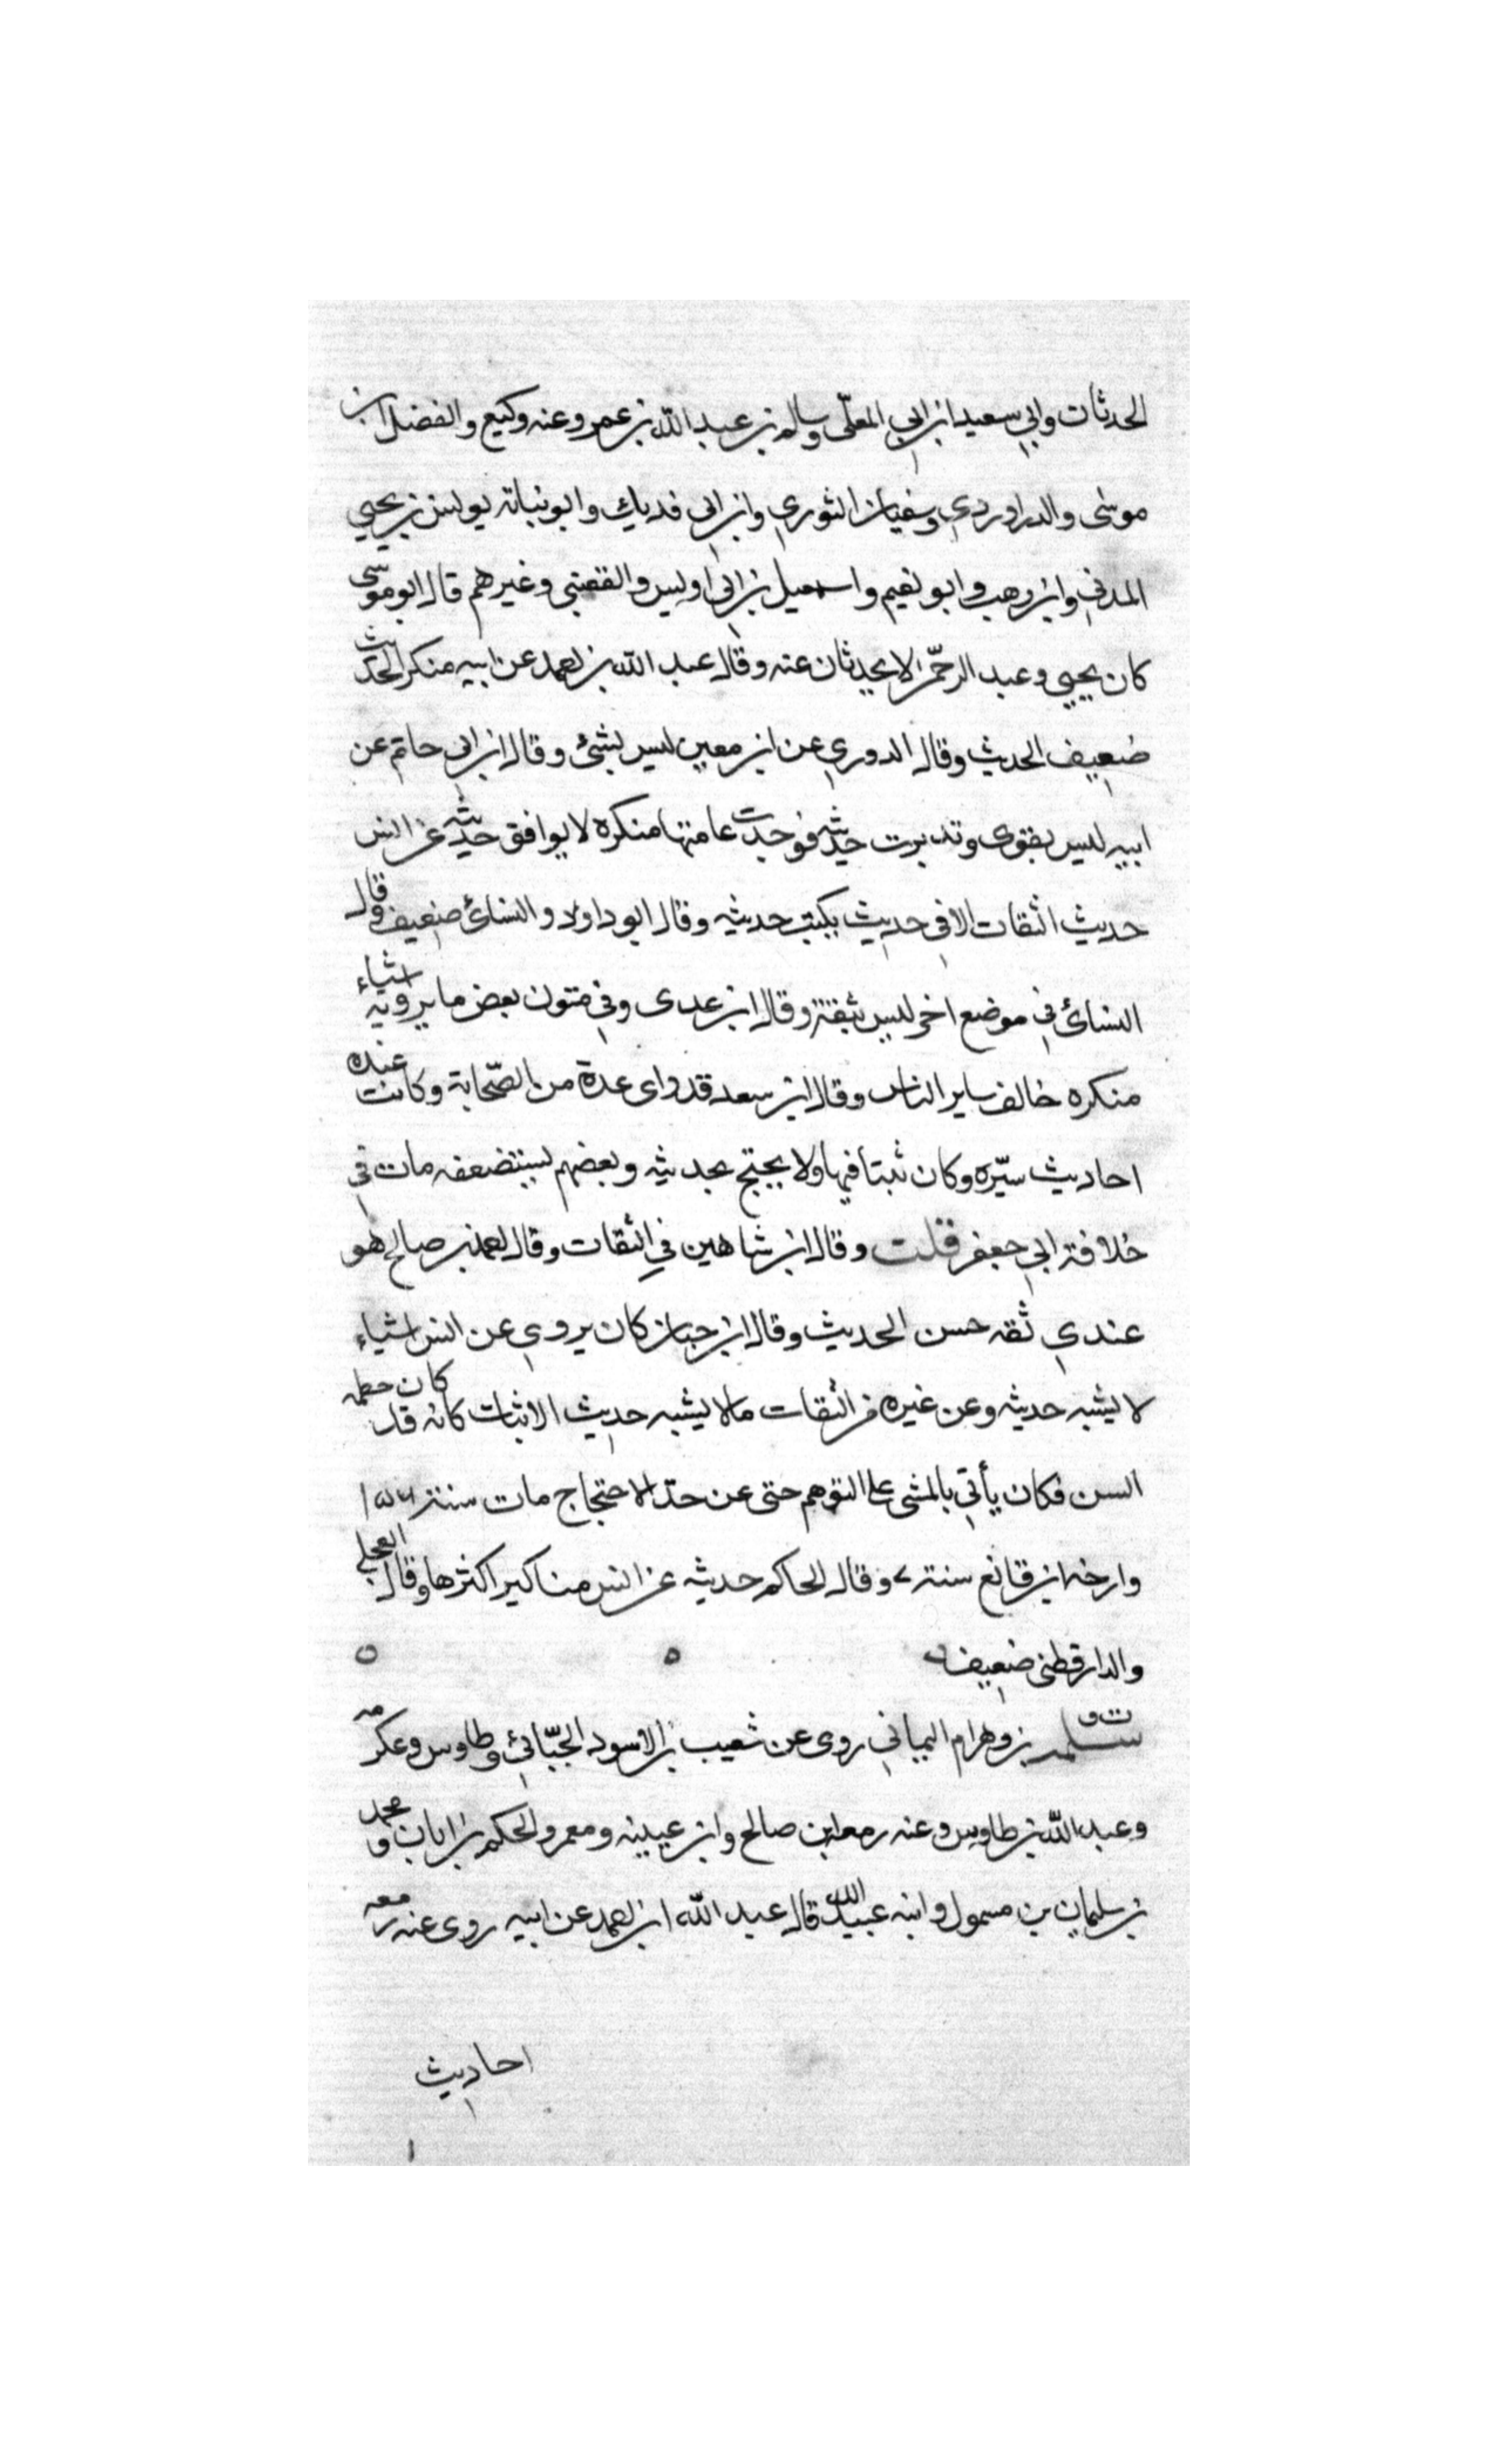 الحدثات وابي سعيد ابن ابي المعلّى وسالم بن عبد الله بن عمر وعنه وكيع والفضل ابن
موسى والدراوردي وسفيان الثوري وابن ابي فديك وابو نباتة يونس بن يحيي
المدني وابن وهب وابو نعيم واسمعيل بن ابي اويس والقعنبي وغيرهم قال ابو موسى
كان يحيي وعبد الرحمن لا يحدثان عنه وقال عبد الله بن احمد عن ابيه منكر الحديث
ضعيف الحديث وقال الدوري عن ابن معين ليس بشئ وقال ابن ابي حاتم عن
ابيه ليس بقوى وتدبرت حديثه فوجدت عامتها منكره لا يوافق حديثه عن انس
حديث الثقات الا في حديث يكتب حديثه وقال ابو داود والنسائ ضعيف وقال
النسائ في موضع اخر ليس بثقة وقال ابن عدى وفي متون بعض ما يرويه اشياء
منكره خالف ساير الناس وقال ابن سعد قد راى عدة من الصّحابة وكانت عنده
احاديث سيّره وكان ثبتا فيها ولا يحتج بحديثه وبعضهم يستضعفه مات في
خلافة ابي جعفر قلت وقال ابن شاهين في الثقات وقال احمد بن صالح هو
عندي ثقه حسن الحديث وقال ابن حبان كان يروي عن انس اشياء
لا يشبه حديثه وعن غيره من الثقات ما لا يشبه حديث الاثبات كانه قد كان حطمه
السن فكان يأتي بالمشى على التوهم حتى عن حدّ الاحتجاج مات سنة
وارخه ابن قانع سنة وقال الحاكم حديثه عن انس مناكير اكثرها وقال العجلي
والدارقطنى ضعيف
ت ق سلمه بن وهرام اليماني روى عن شعيب بن الاسود الجبّائي وطاوس وعكرمه
وعبد الله بن طاوس وعنه رمعابن صالح وابن عيينه ومعمر والحكم بن ابان ومحمد
بن سليمان بن مسمول وابنه عبيد الله قال عبد الله ابن احمد عن ابيه روى عنه زمعه
احاديث